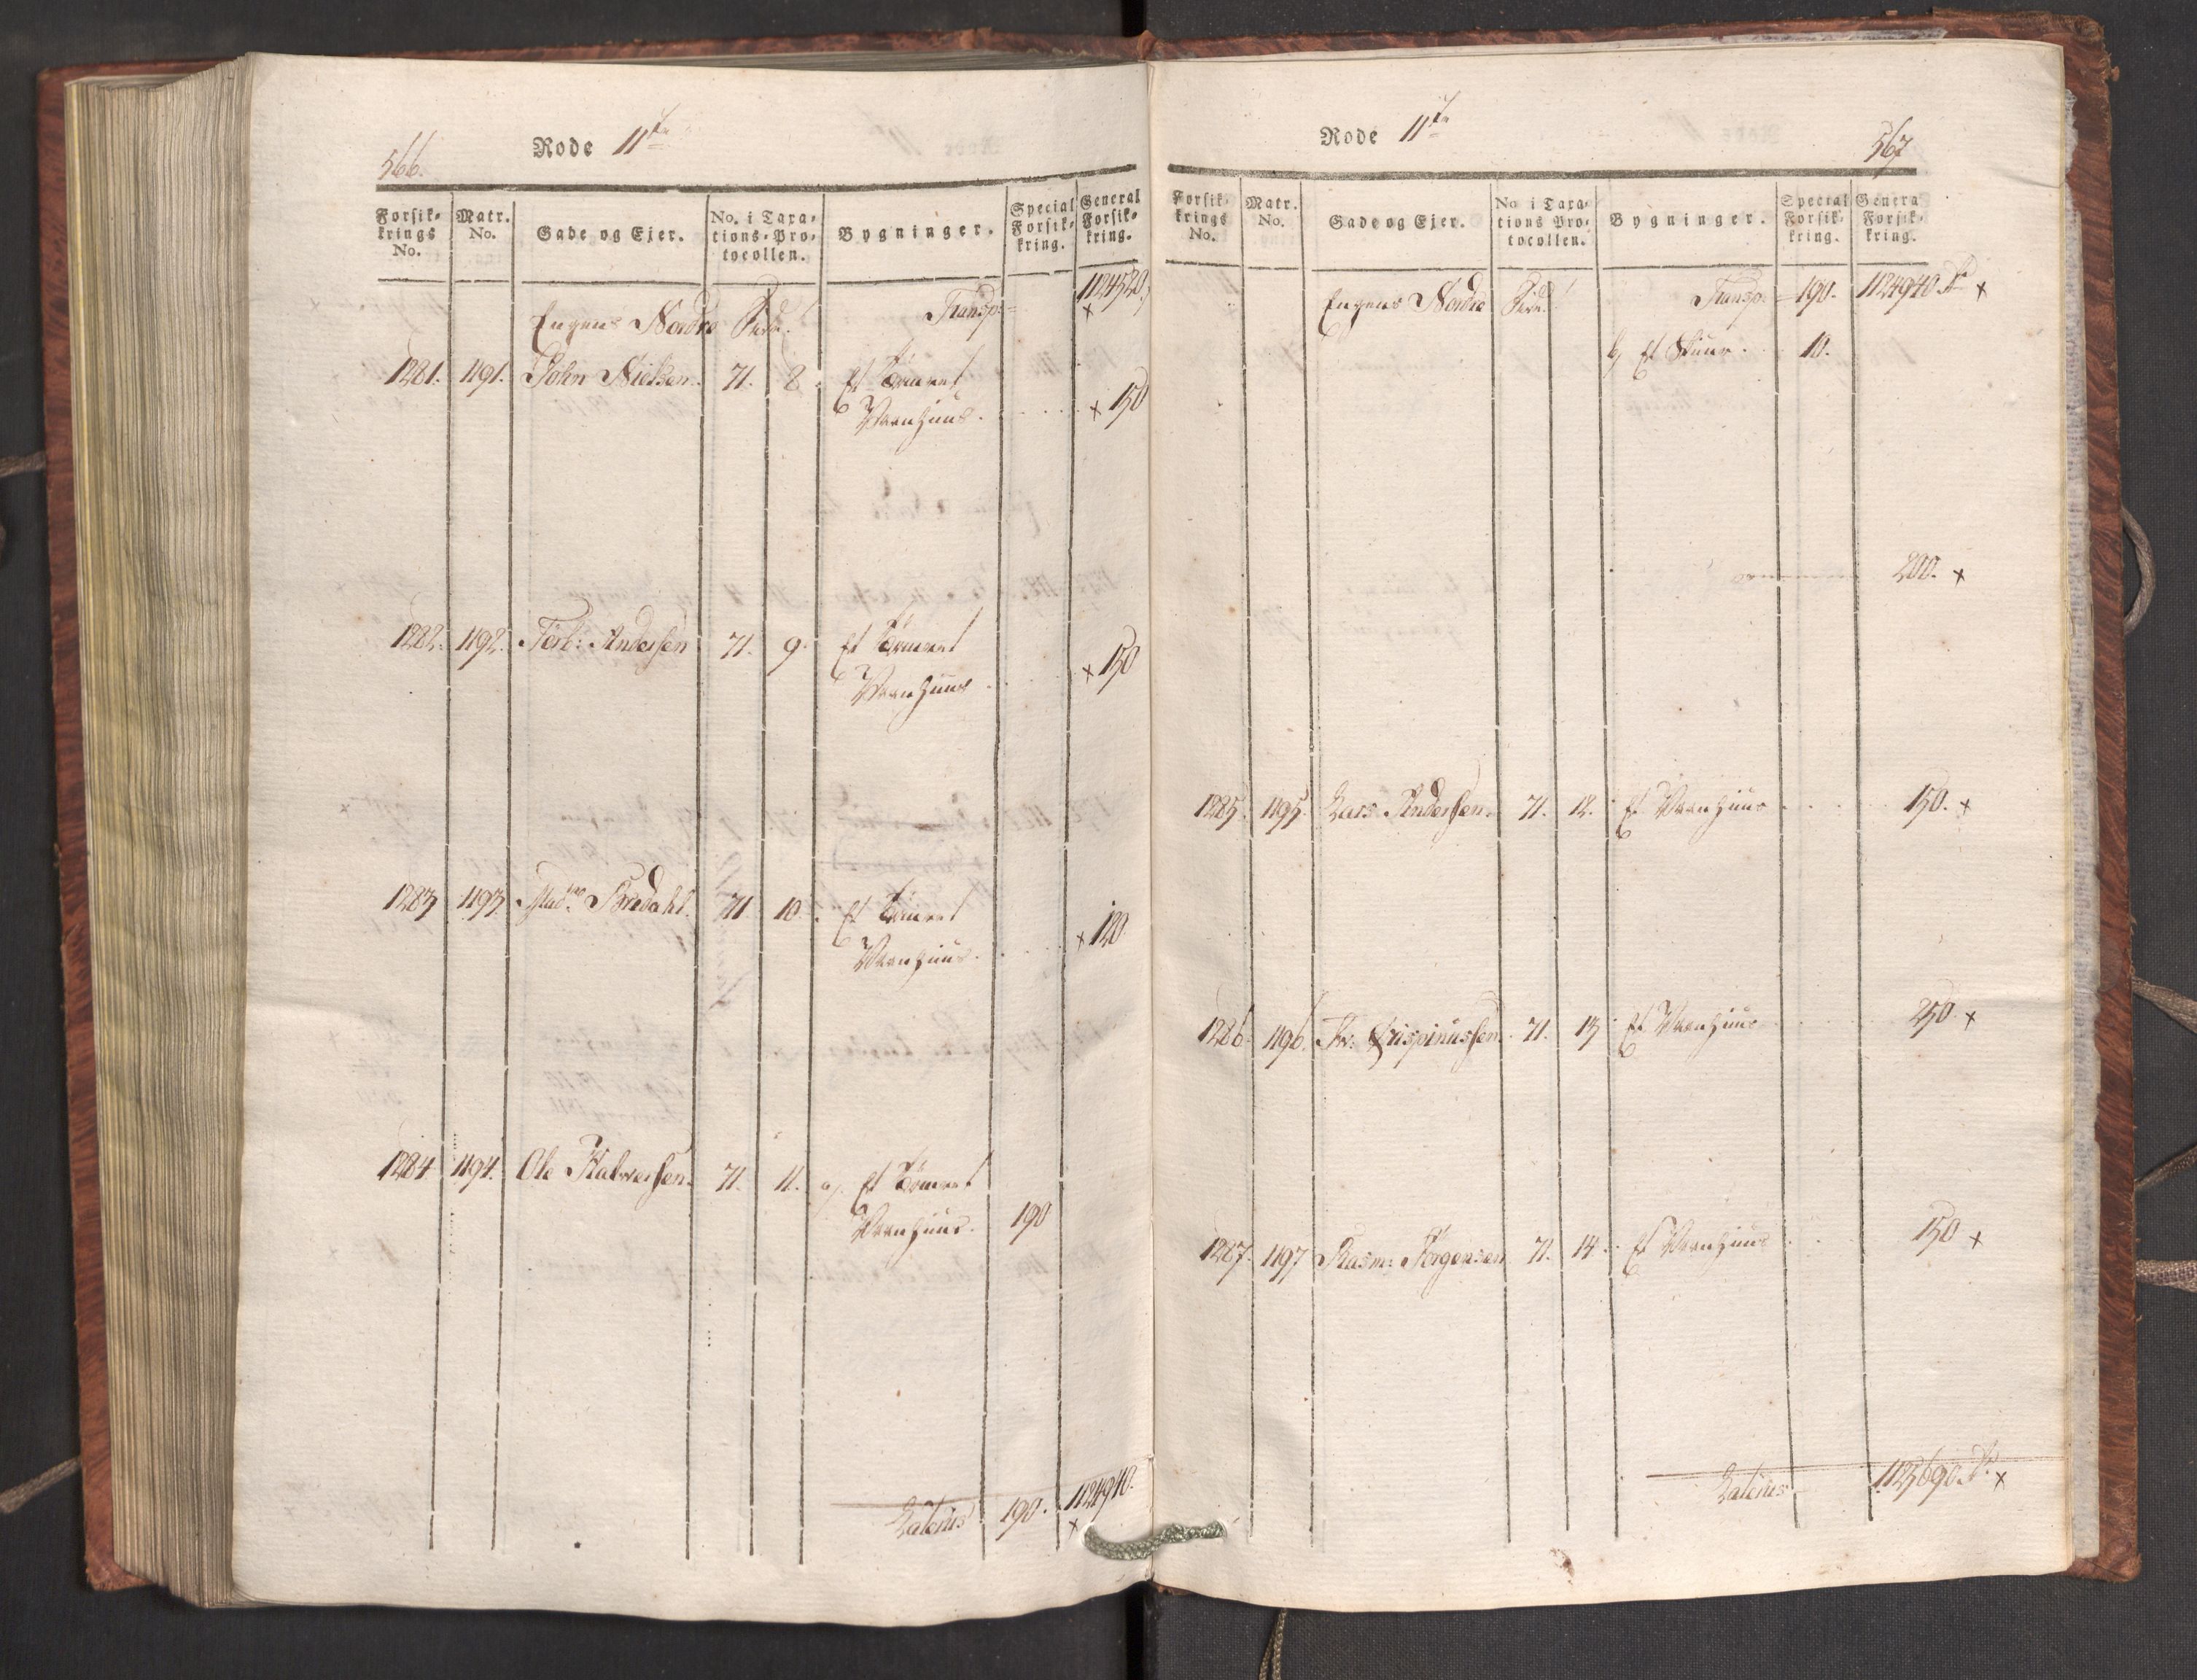 566.
Rode 11te
Forsik-
krings
No.
Matr.
No.
Gade og Ejer.
No. i Taxa-
tions-Pro-
tocollen.
Bygninger.
Special
Forsik-
kring.
General
Forsik-
kring.
Engens Nordre Side. Transp: 1124520.
x
1281. 1191. John Nielsen. 71. 8. Et Tømret
Vaanhuus. x 150
1282. 1192. Torb: Andersen 71. 9. Et Tømret
Vaanhuus x 150
1283 1193. Madme Bredahl. 71 10. Et Tømret
Vaanhuus. x 120.
1284 1194. Ole Halvorsen. 71. 11. a, Et Tømret
Vaanhuus. 190
Lateris 190. 1124940.
x
Rode 11te
567
Forsik-
krings
No.
Matr.
No.
Gade og Ejer.
No i Taxa-
tions Pro-
tocollen.
Bygninger.
Special
Forsik-
kring.
Genera
Forsik-
kring.
Engens Nordre Side. Transp: 190. 1124940 x
b, Et Skuur. 10.
200. x
1285. 1195. Lars Andersen. 71. 12. Et Vaanhuus 150. x
1286. 1196. Chrispinussen. 71. 13 Et Vaanhuus 250 x
1287. 1197 Rasm: Jørgensen 71. 14. Et Vaanhuus 150 x
Lateris 1125690. x